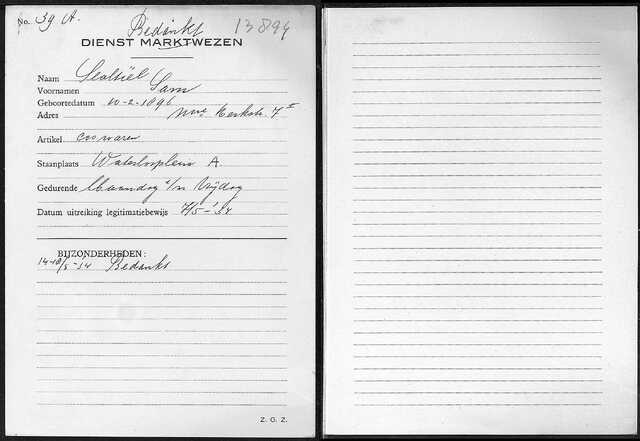 No. 39 A. Bedankt 13894
DIENST MARKTWEZEN
Naam Sealtiël
Voornamen Sam
Geboortedatum 10-2-1896
Adres Nwe Kerkstr. 7 II
Artikel
Staanplaats Waterlooplein A.
Gedurende Maandag t/m Vrijdag
Datum uitreiking legitimatiebewijs 7/5-'34
BIJZONDERHEDEN:
Bedankt
Z. O. Z.